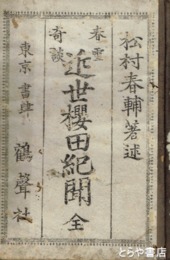 松村春輔著述
春雪
奇談
近世櫻田紀聞 全
東京書肆 鶴聲社
とらや書店